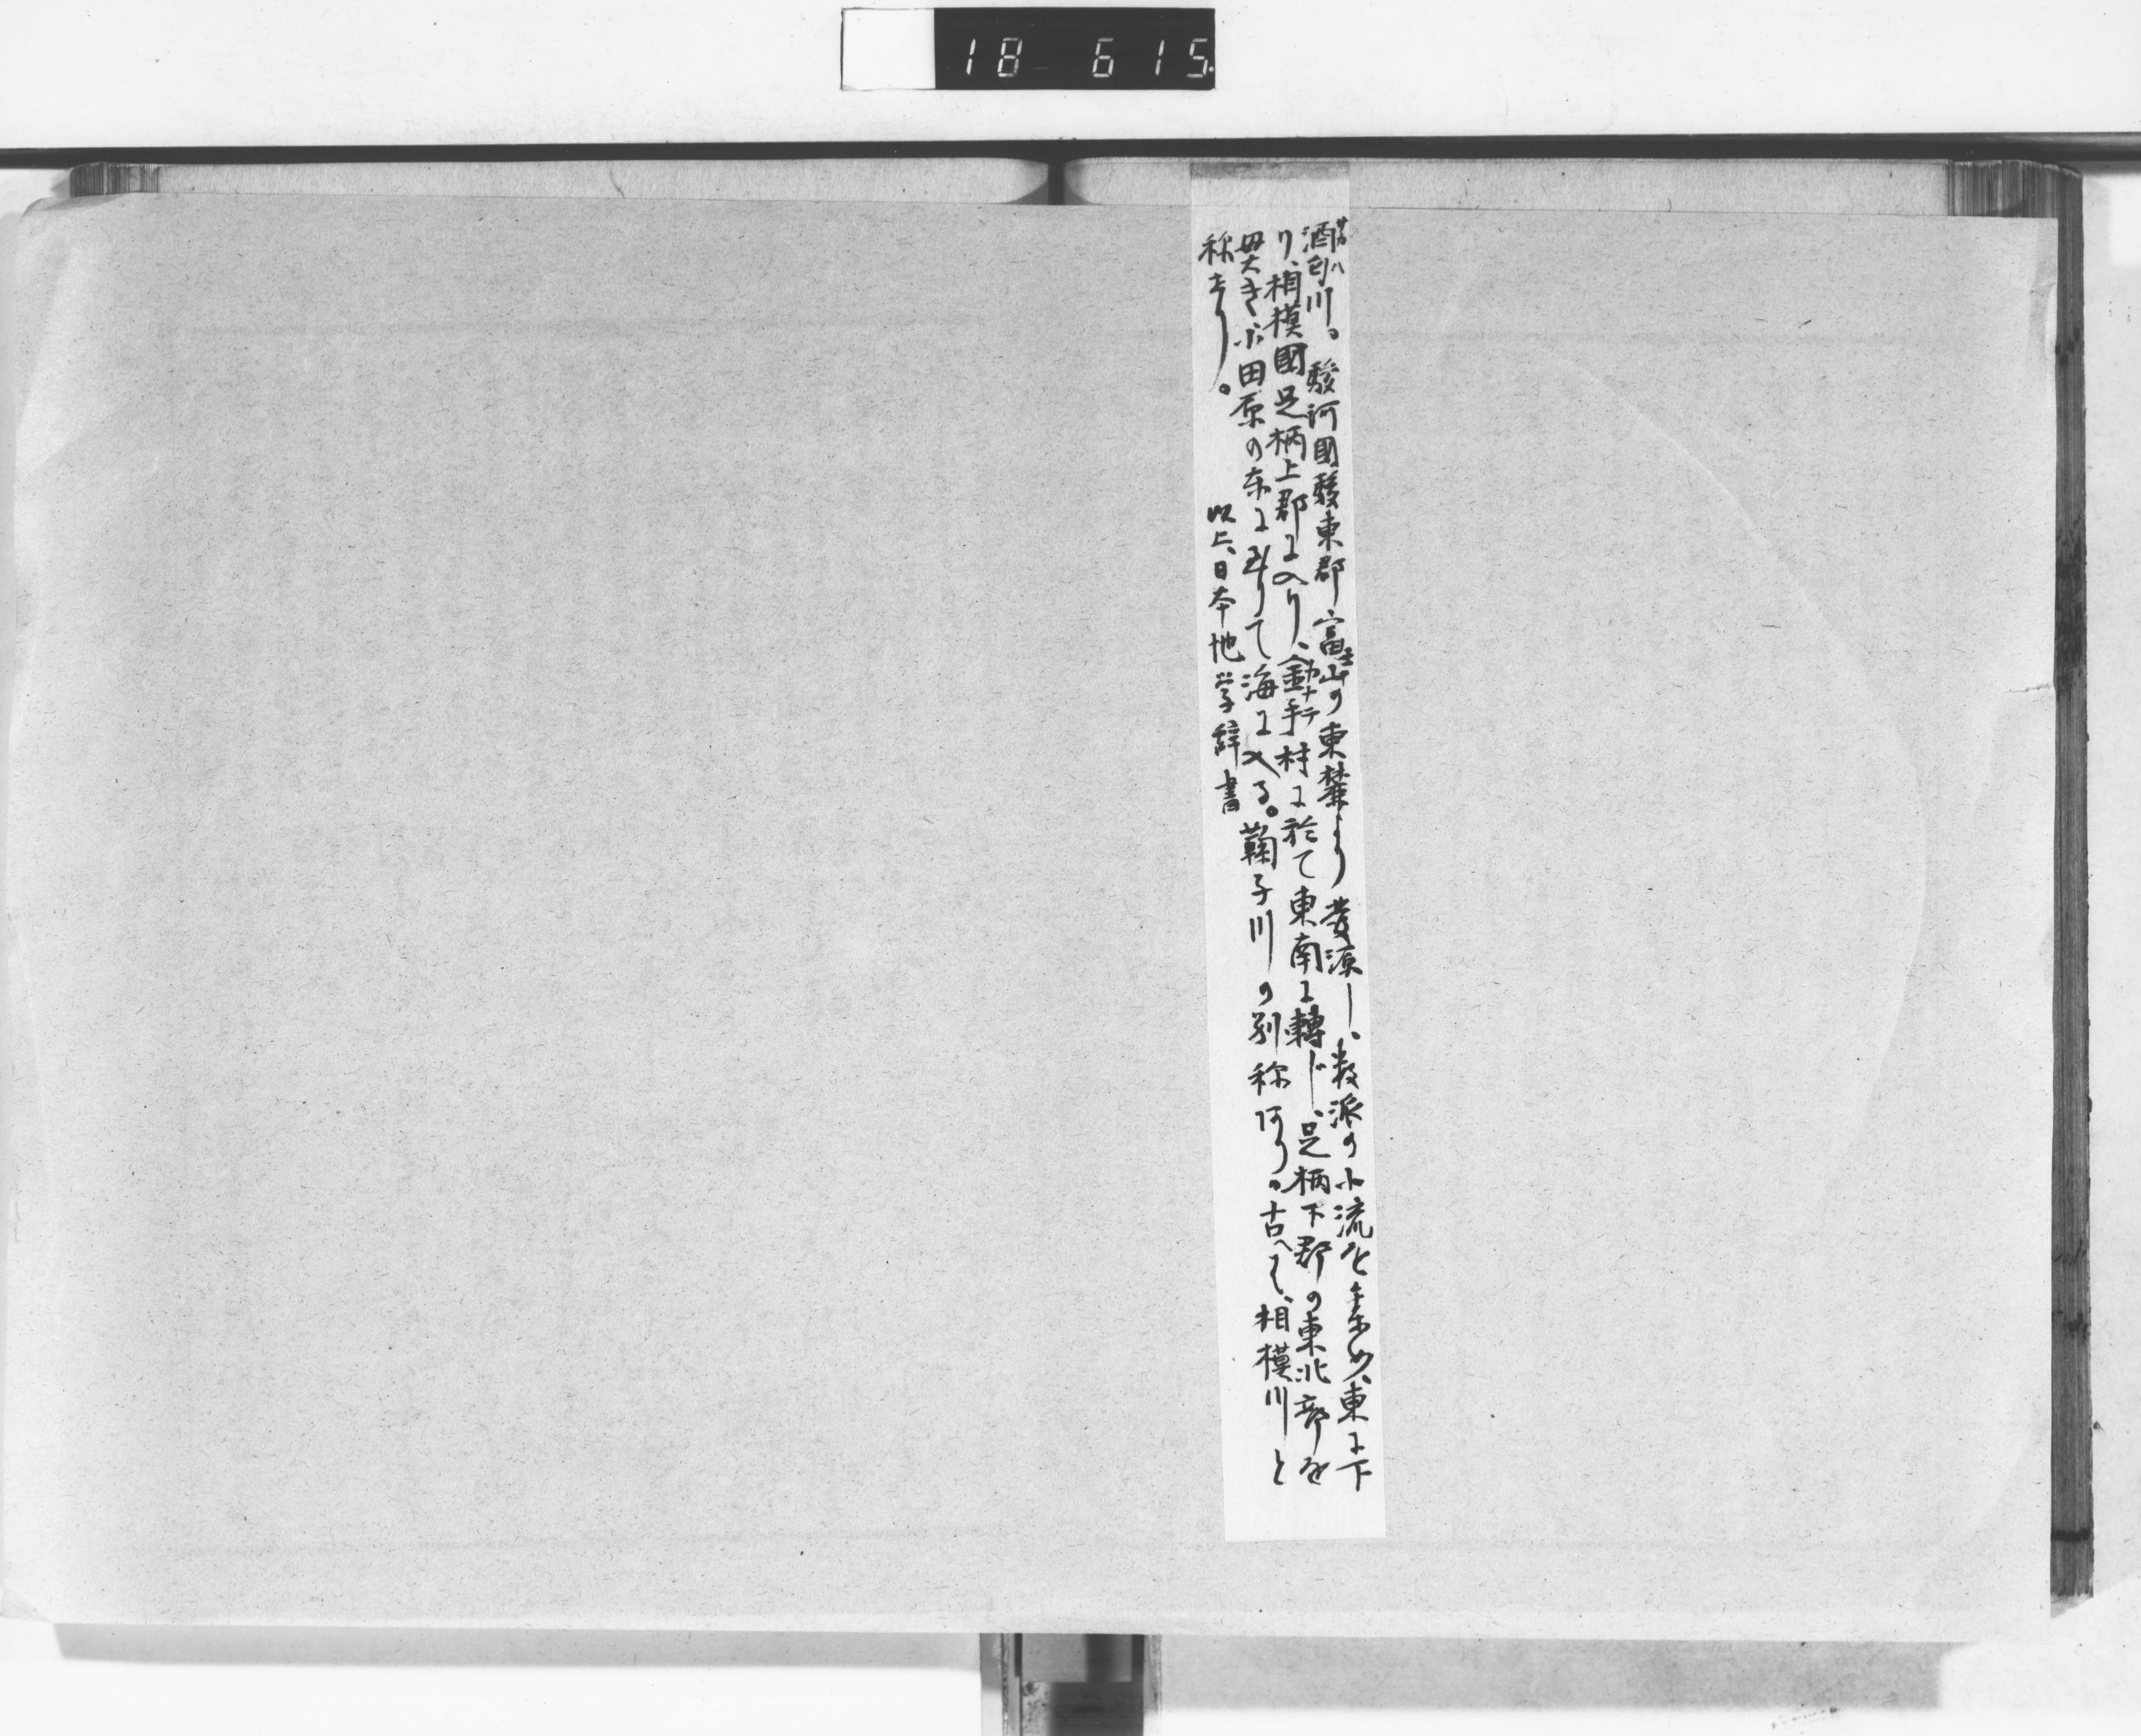 18 615
酒匂川。駿河國駿東郡富士山の東麓より發源し、数派の小流を集め、東に下
り、相模國足柄上郡に入り、金手村に於て東南に轉じ、足柄下郡の東北部を
貫き、小田原の東に到りて海に入る。鞠子川の別称阿り。古へは、相模川と
称せり。 以上、日本地学辞書